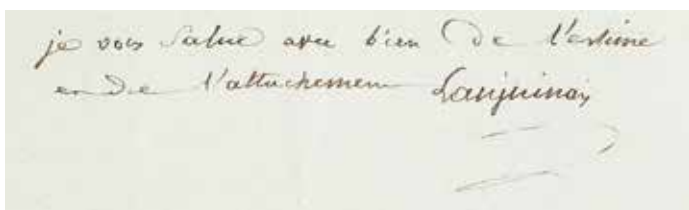 je vous salue avec bien de l'estime
et de l'attachement Lanjuinais